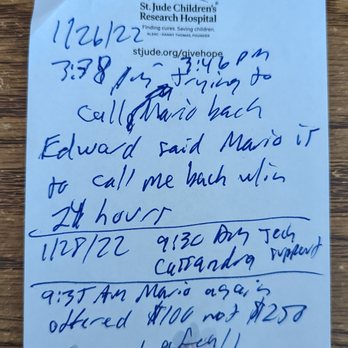 St. Jude Children's
Research Hospital
Finding cures. Saving children.
ALSAC • DANNY THOMAS, FOUNDER
stjude.org/givehope
1/26/22
3:38 pm - 3:46 pm
trying to
call Mario back
Edward said Mario is
to call me back w/in
24 hours
1/28/22 9:30 Am Tech
Cassandra support
9:35 Am Mario again
offered $100 not $250